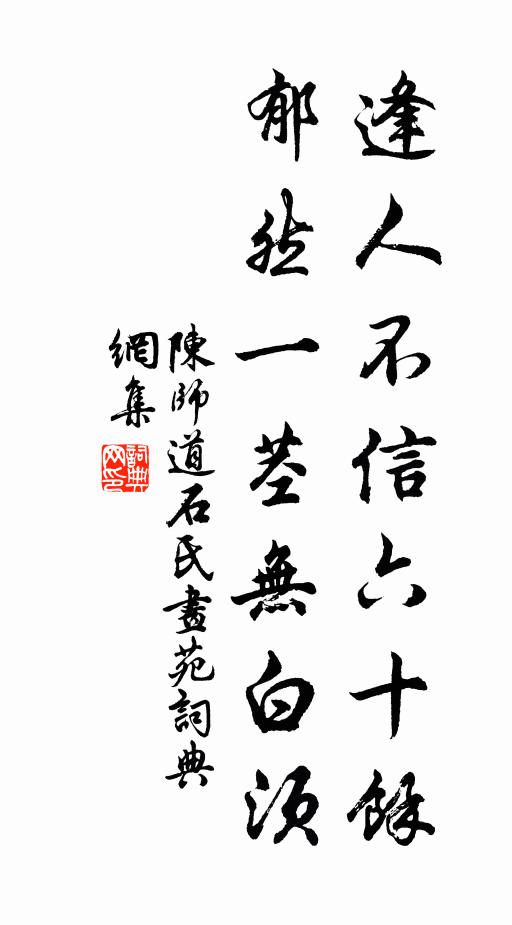 逢人不信六十餘
郁然一莖無白須
陳師道石氏畫苑詞典
網集
詞典
网印